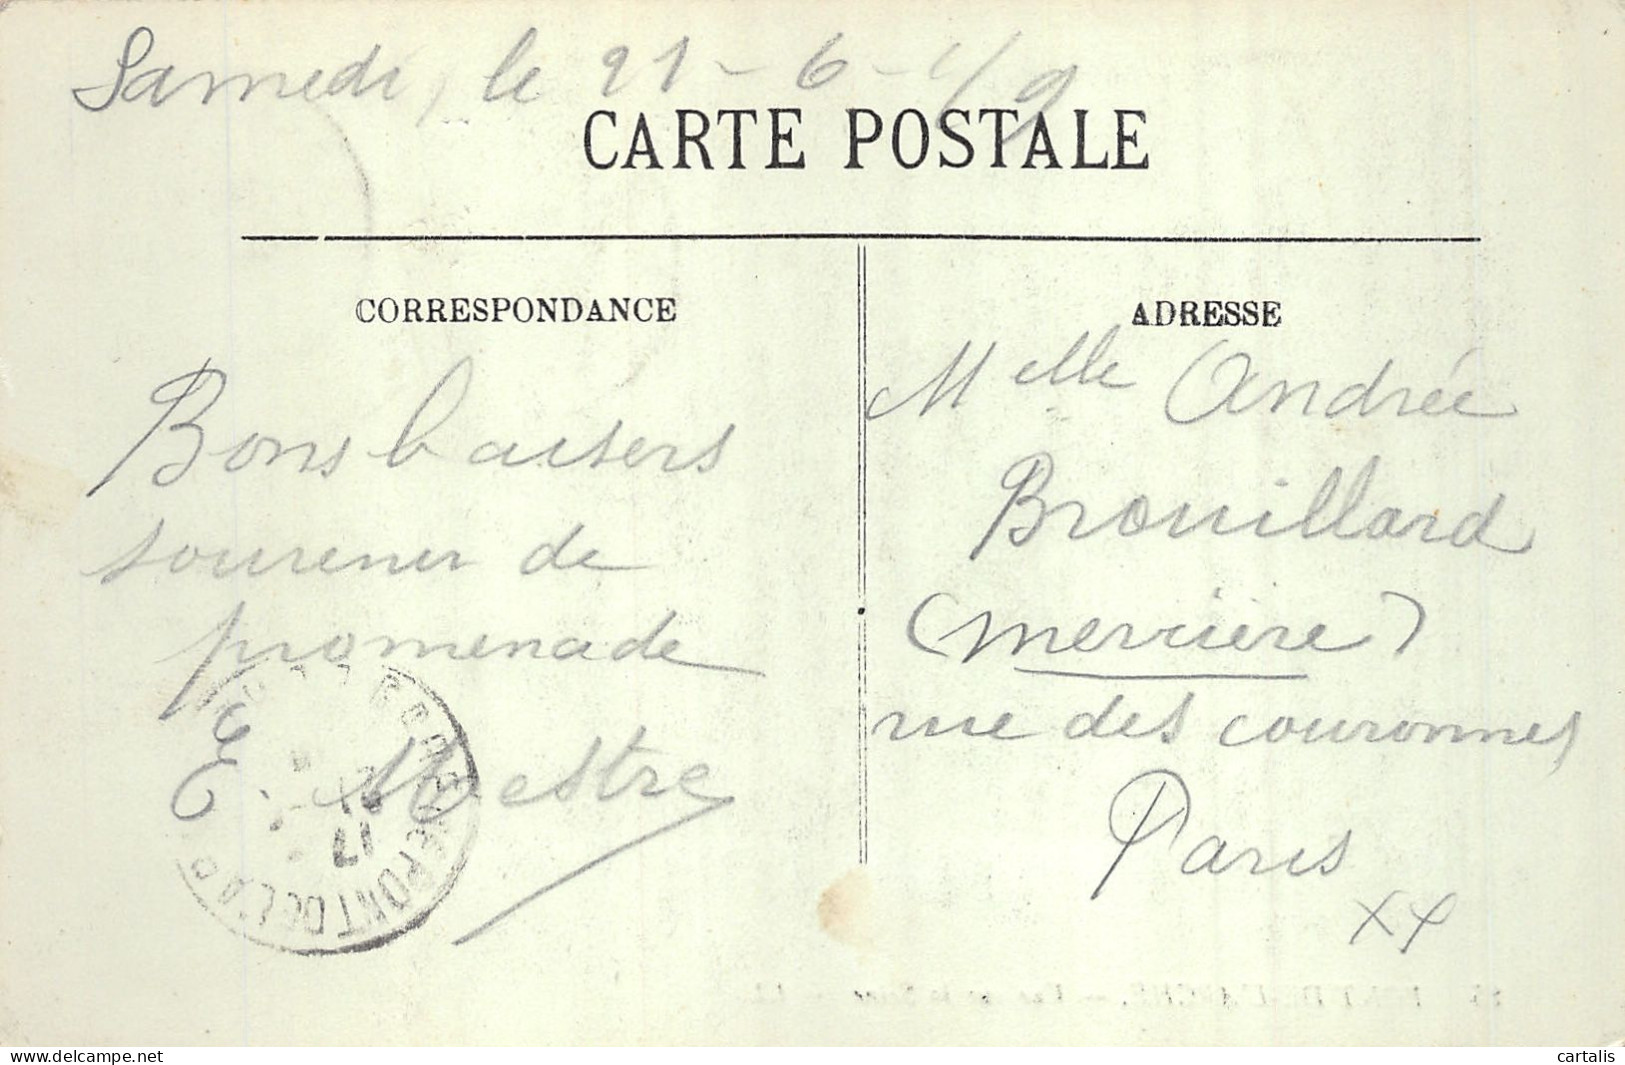 Samedi, le 21-6-19
CARTE POSTALE
CORRESPONDANCE
ADRESSE
Bons baisers
souvenir de
promenade
E. Mestre
Melle Andrée
Brouillard
(mercière)
rue des couronnes
Paris
XX
PONT DE L'A
delcampe.net
cartalis